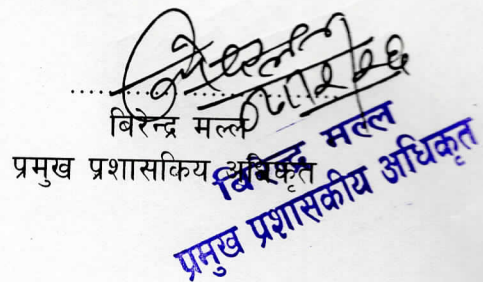 बिरेन्द्र मल्ल
प्रमुख प्रशासकिय अधिकृत
बिरेन्द्र मल्ल
प्रमुख प्रशासकीय अधिकृत